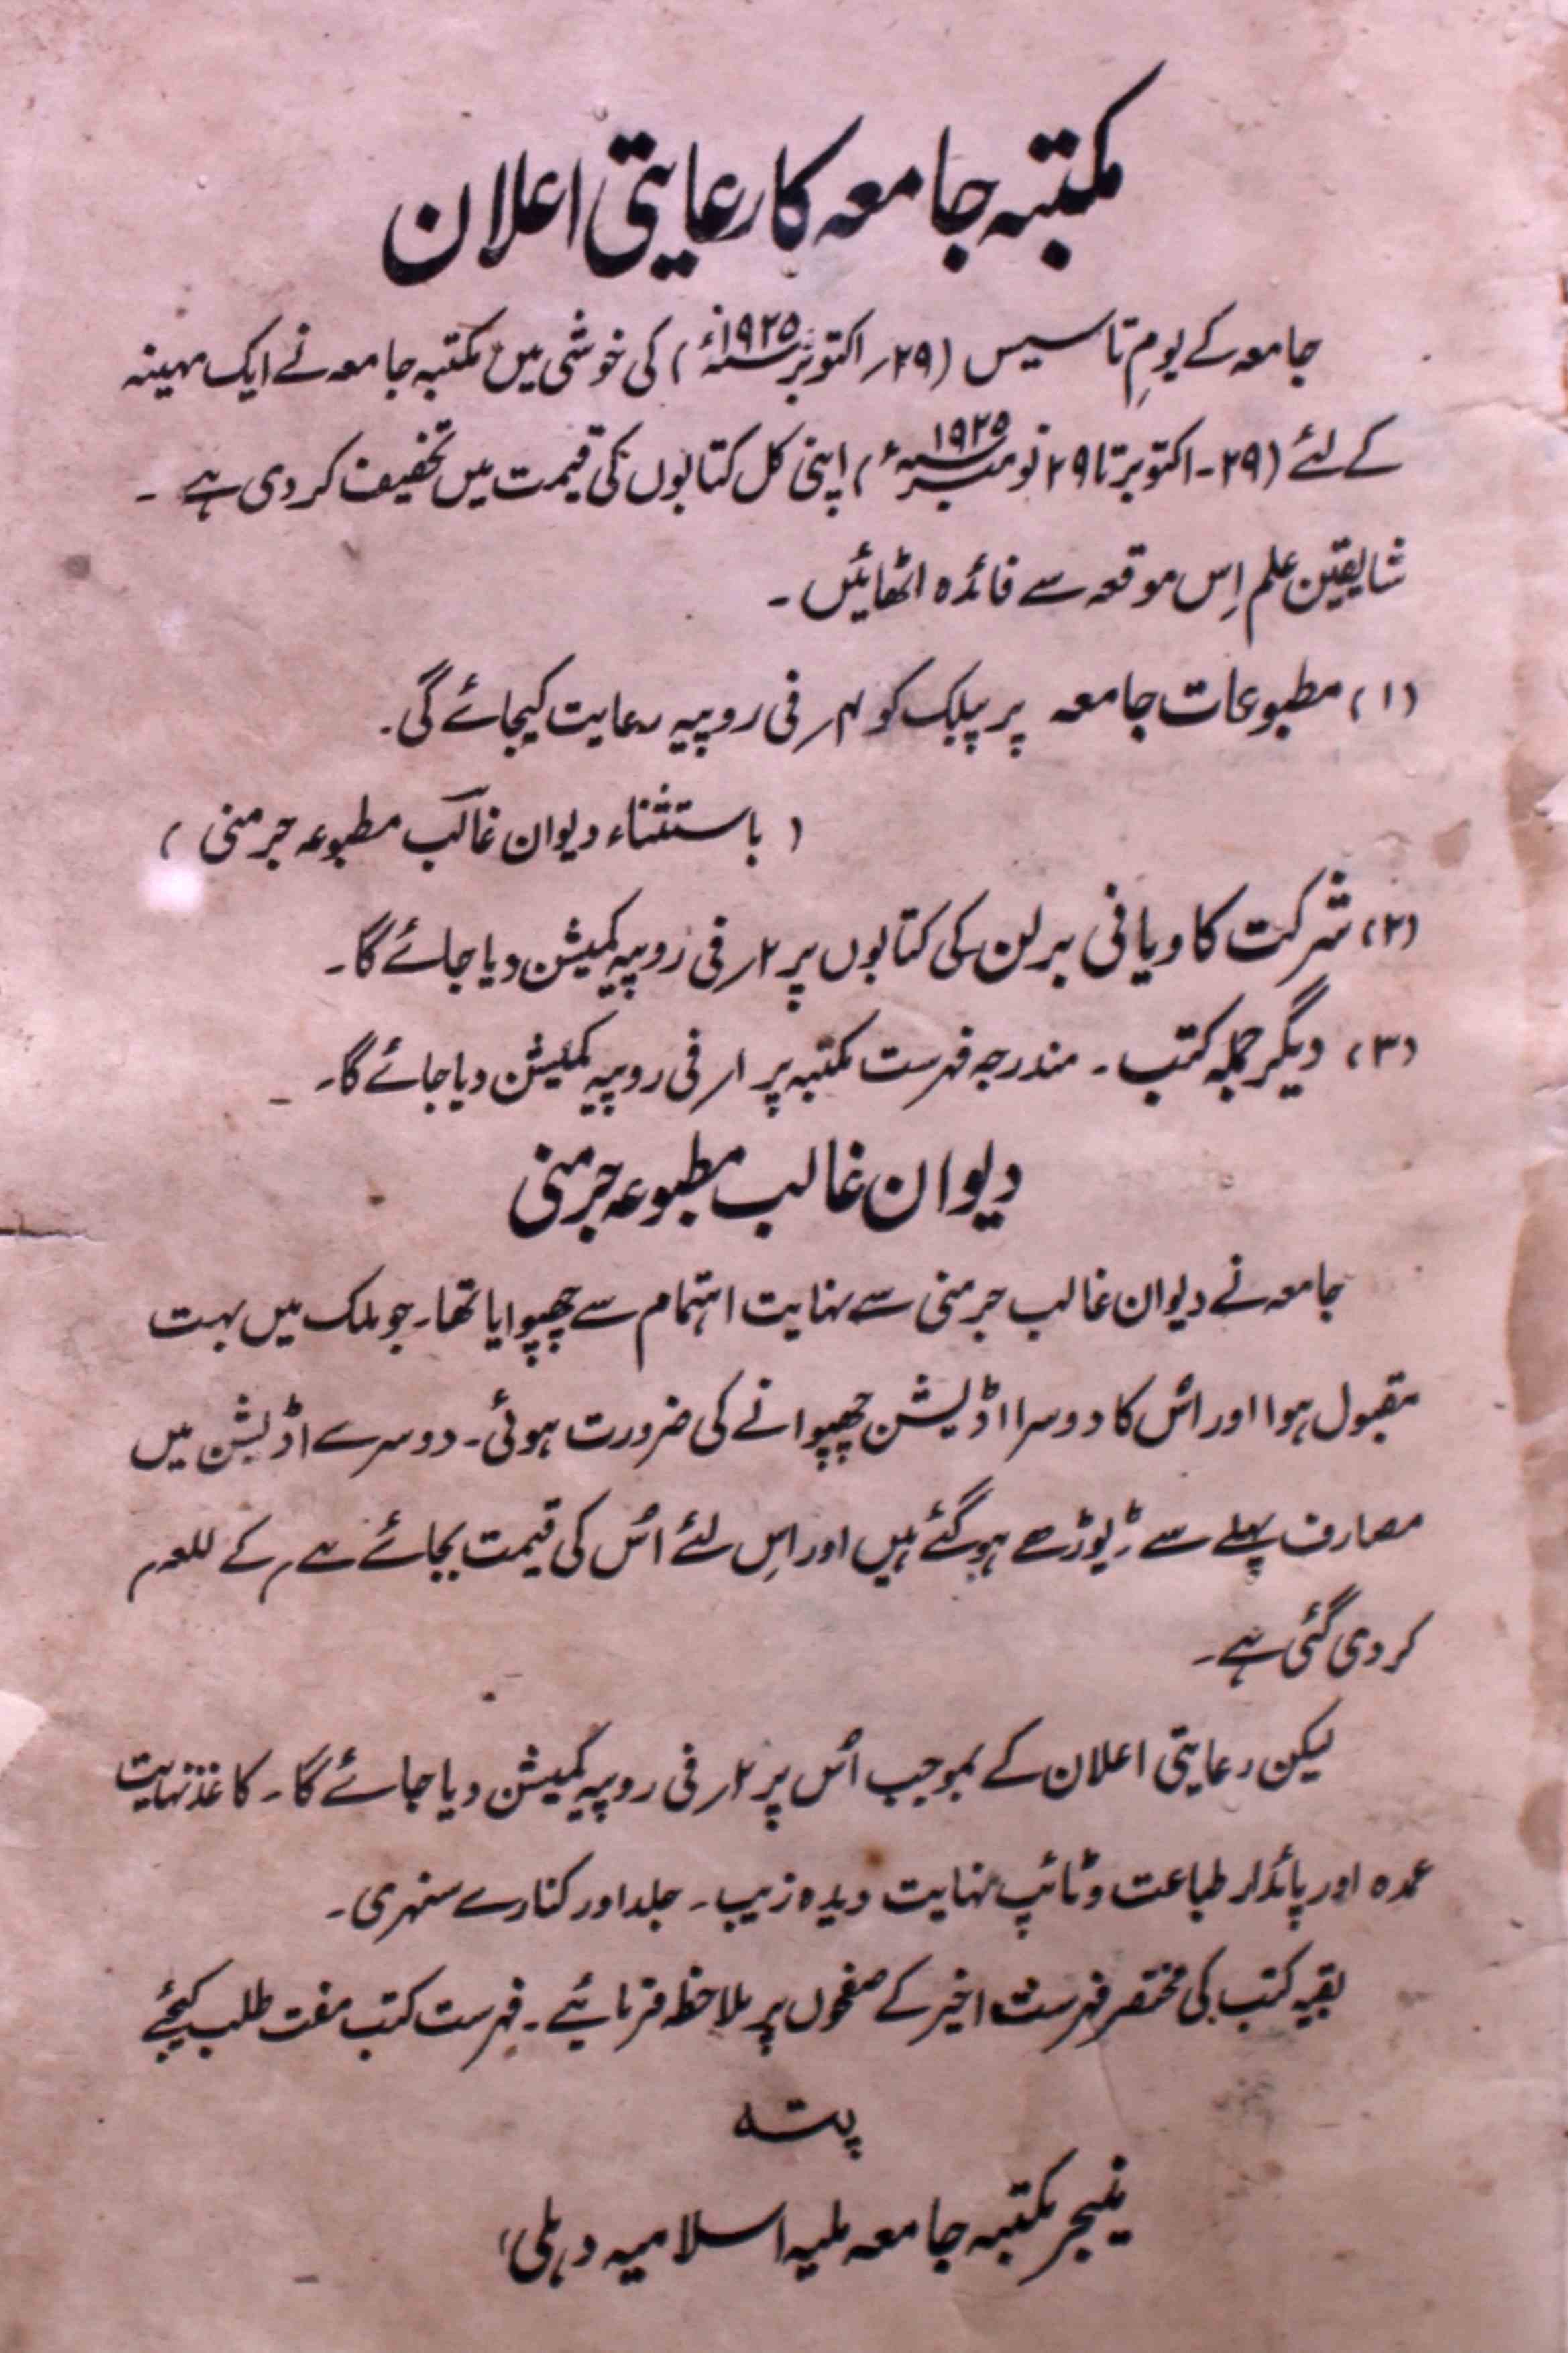 مکتبہ جامعہ کا رعایتی اعلان
جامعہ کے یومِ تاسیس (۲۹؍ اکتوبر سنہ ۱۹۲۵ء) کی خوشی میں مکتبہ جامعہ نے ایک مہینہ
کے لئے (۲۹۔ اکتوبر تا ۲۹ نومبر سنہ ۱۹۲۵ء) اپنی کل کتابوں کی قیمت میں تخفیف کر دی ہے ۔
شایقین علم اِس موقعہ سے فائدہ اٹھائیں ۔
(۱) مطبوعات جامعہ پر پبلک کو ۴؍ فی روپیہ رعایت کیجائے گی۔
( باستثناء دیوان غالب مطبوعہ جرمنی )
(۲) شرکت کاویانی برلن کی کتابوں پر ۲؍ فی روپیہ کمیشن دیا جائے گا۔
(۳) دیگر جملہ کتب ۔ مندرجہ فہرست مکتبہ پر ۱؍ فی روپیہ کمیشن دیا جائے گا۔
دیوان غالب مطبوعہ جرمنی
جامعہ نے دیوان غالب جرمنی سے نہایت اہتمام سے چھپوایا تھا۔ جو ملک میں بہت
مقبول ہوا اور اُس کا دوسرا اڈیشن چھپوانے کی ضرورت ہوئی۔ دوسرے اڈیشن میں
مصارف پہلے سے ڑیوڑھے ہو گئے ہیں اور اِس لئے اُس کی قیمت بجائے کے
کر دی گئی ہے۔
لیکن رعایتی اعلان کے بموجب اُس پر ۲؍ فی روپیہ کمیشن دیا جائے گا۔ کاغذ نہایت
عمدہ اور پائدار طباعت و ٹائپ نہایت دیدہ زیب۔ جلد اور کنارے سنہری۔
بقیہ کتب کی مختصر فہرست اخیر کے صفحوں پر ملاحظہ فرمائیے۔ فہرست کتب مفت طلب کیجئے
پتہ
منیجر مکتبہ جامعہ ملیہ اسلامیہ دہلی